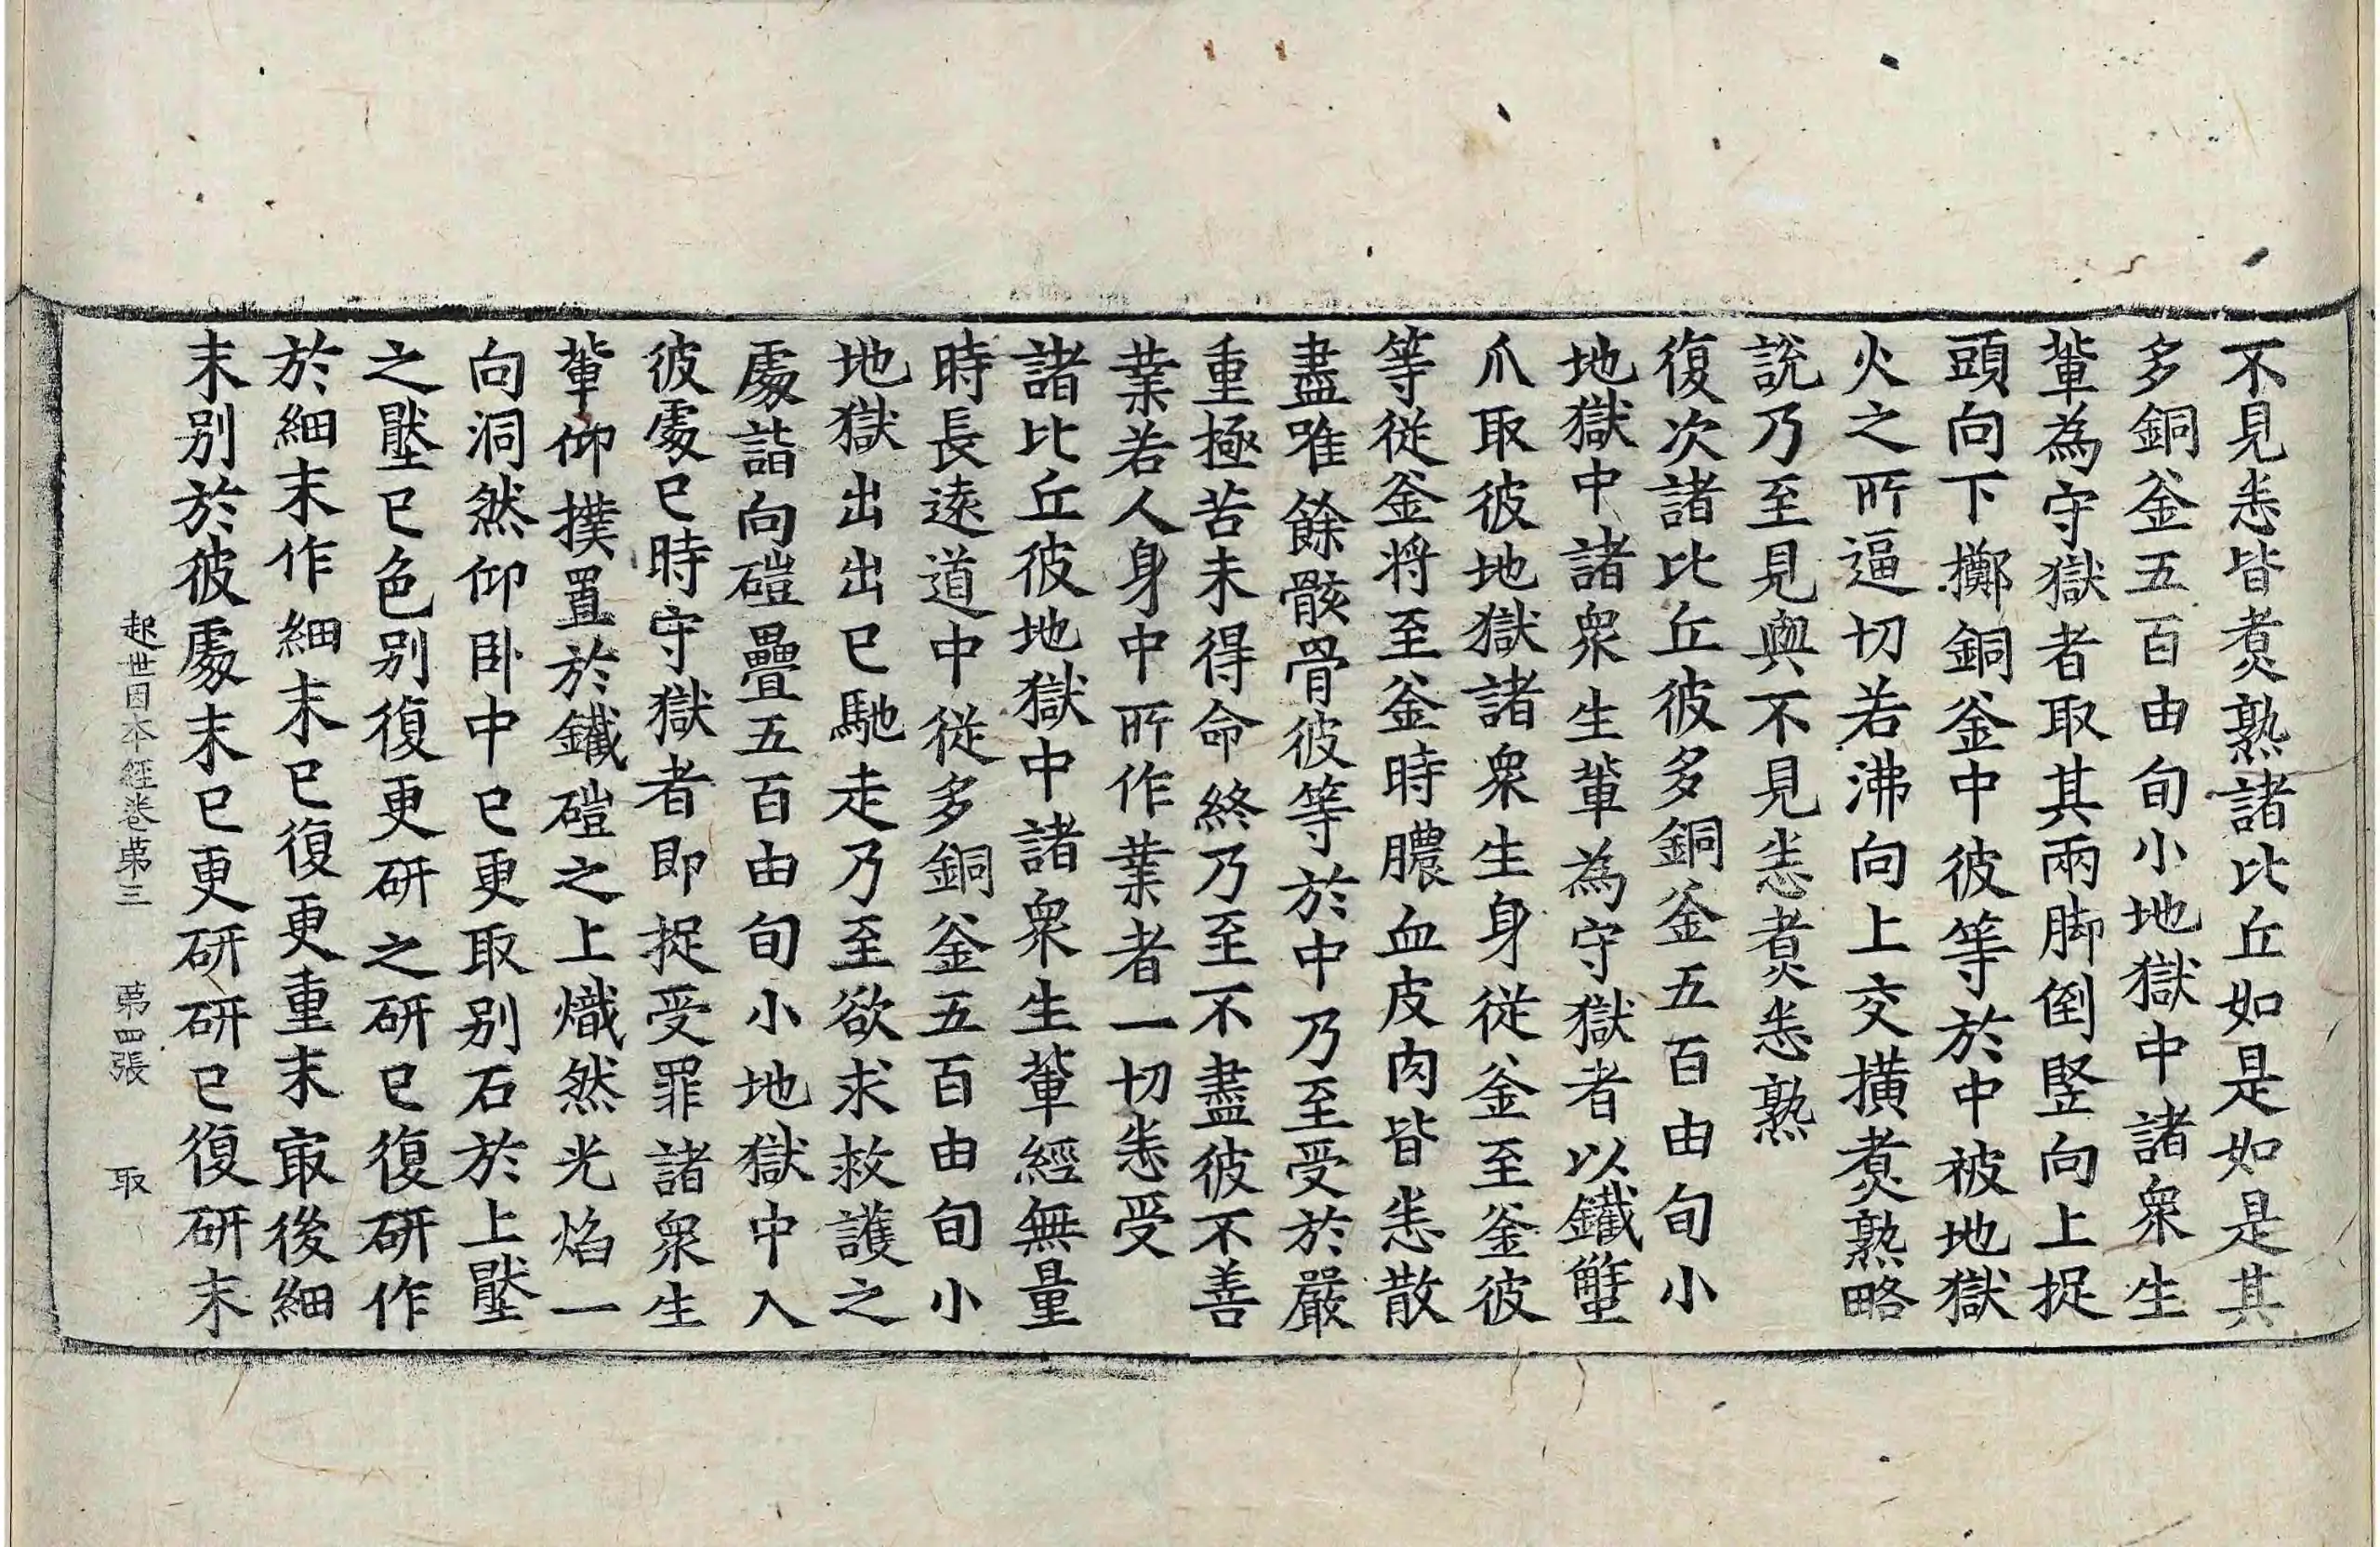 不見悉皆煑熟諸比丘如是如是其
多銅釜五百由旬小地獄中諸衆生
軰為守獄者取其兩脚倒竪向上捉
頭向下擲銅釜中彼等於中被地獄
火之所逼切若沸向上交撗煑熟略
說乃至見與不見悉煑悉熟
復次諸比丘彼多銅釜五百由旬小
地獄中諸衆生軰為守獄者以鐵蟹
爪取彼地獄諸衆生身從釜至釜彼
等從釜將至釜時膿血皮肉皆悉散
盡唯餘骸骨彼等於中乃至受於嚴
重極苦未得命終乃至不盡彼不善
業若人身中所作業者一切悉受
諸比丘彼地獄中諸衆生軰經無量
時長遠道中從多銅釜五百由旬小
地獄出出已馳走乃至欲求救護之
處詣向磑疊五百由旬小地獄中入
彼處已時守獄者即捉受罪諸衆生
軰仰撲置於鐵磑之上熾然光焰一
向洞然仰卧中已更取別石於上壓
之壓已色別復更研之研已復研作
於細末作細末已復更重末冣後細
末別於彼處末已更研研已復研末
起世因本經卷苐三 苐四張 取